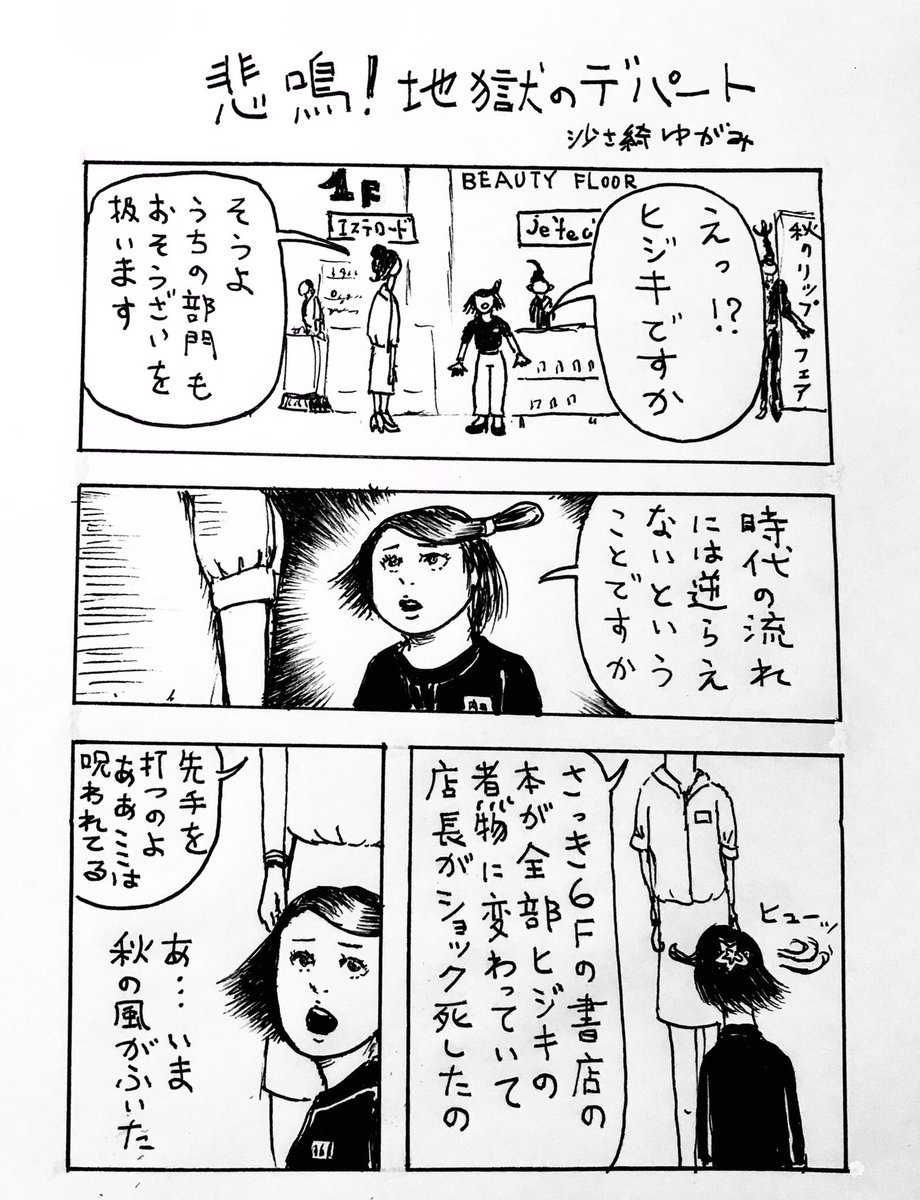 悲鳴!地獄のデパート
沙さ綺ゆがみ
えっ!?
ヒジキですか
BEAUTY FLOOR
1F
エステロード
秋のリップフェア
そうよ
うちの部門も
おそうざいを
扱います
時代の流れ
には逆らえ
ないという
ことですか
さっき6Fの書店の
本が全部ヒジキの
煮物に変わっていて
店長がショック死したの
ヒューッ
先手を
打つのよ
ああここは
呪われてる
あ…いま
秋の風がふいた